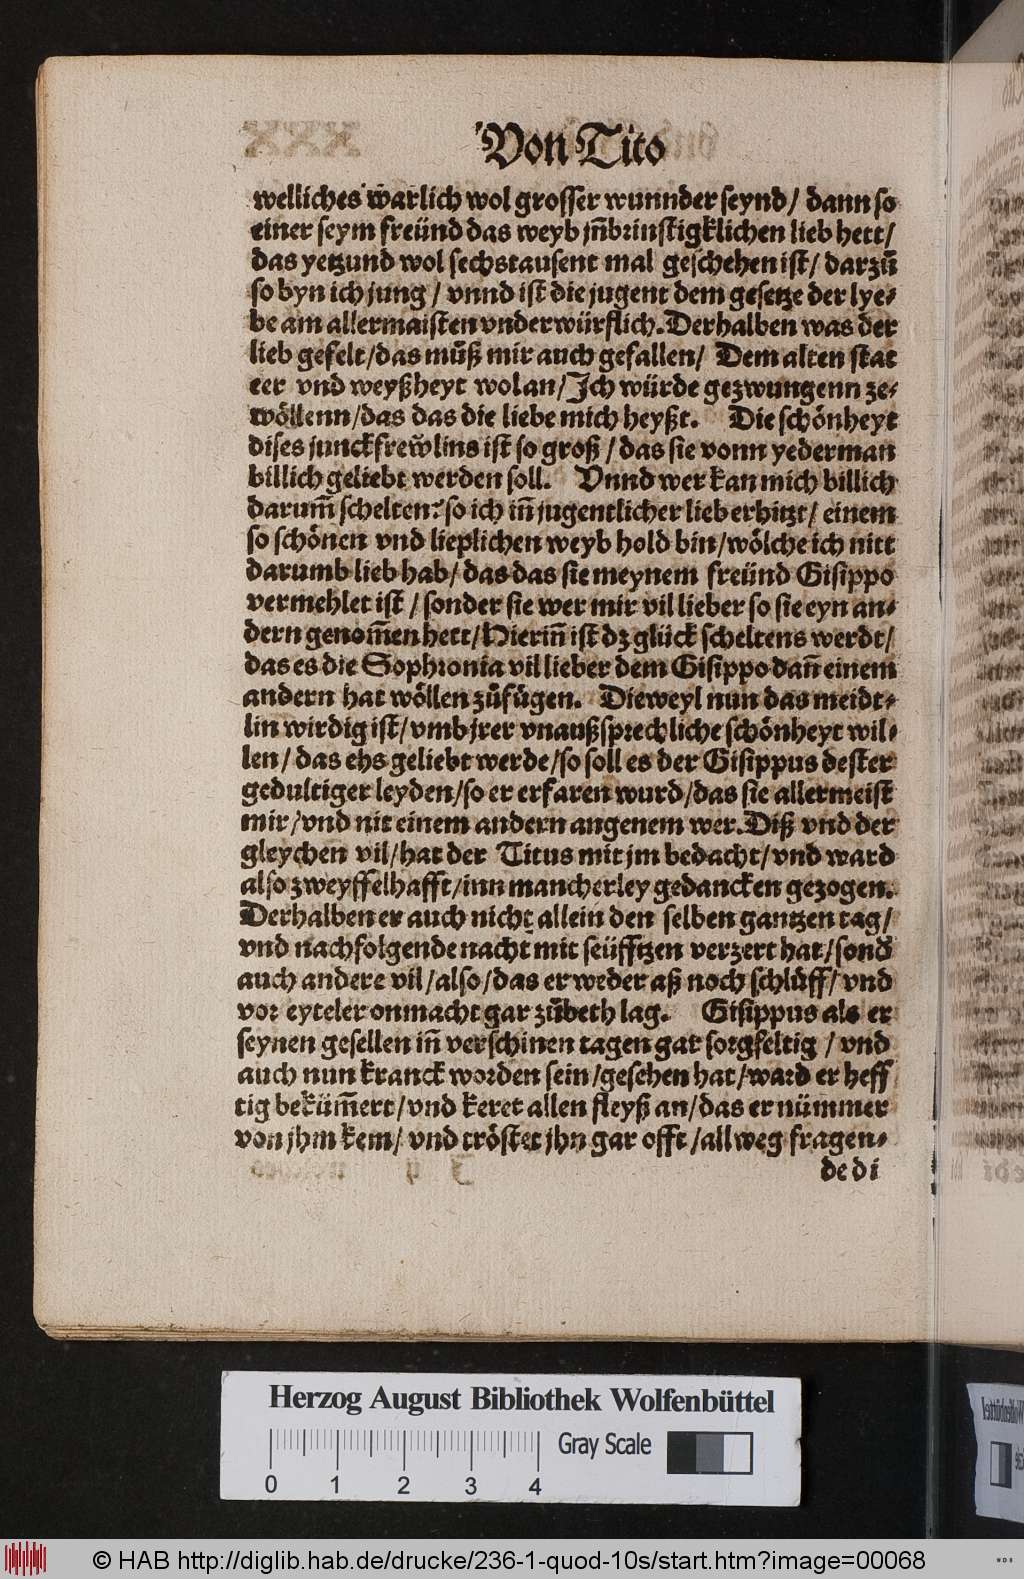 Von Tito
welliches warlich wol grosser wunnder seynd/ dann so
einer seym freünd das weyb jn̄brinstigklichen lieb hett/
das yetzund wol sechstausent mal geschehen ist/ darzů
so byn ich jung/ vnnd ist die jugent dem gesetze der lye⸗
be am allermaisten vnderwürflich. Derhalben was der
lieb gefelt/das můß mir auch gefallen/ Dem alten stat
eer vnd weyßheyt wol an/Ich würde gezwungenn ze⸗
wöllenn/das das die liebe mich heyßt. Die schönheyt
dises junckfrewlins ist so groß/das sie vonn yederman
billich geliebt werden soll. Vnnd wer kan mich billich
darum̄ schelten? so ich in̄ jugentlicher lieb erhitzt/ einem
so schönen vnd lieplichen weyb hold bin/wölche ich nitt
darumb lieb hab/ das das sie meynem freünd Gisippo
vermehlet ist/ sonder sie wer mir vil lieber so sie eyn an⸗
dern genom̄en hett/Hierin̄ ist dz glück scheltens werdt/
das es die Sophronia vil lieber dem Gisippo dan̄ einem
andern hat wöllen zůfügen. Dieweyl nun das meidt⸗
lin wirdig ist/vmb jrer vnaußsprechliche schönheyt wil⸗
len/ das ehs geliebt werde/so soll es der Gisippus dester
gedultiger leyden/so er erfaren wurd/das sie allermeist
mir/vnd nit einem andern angenem wer. Diß vnd der
gleychen vil/hat der Titus mit jm bedacht/vnd ward
also zweyffelhafft/inn mancherley gedancken gezogen.
Derhalben er auch nicht allein den selben gantzen tag/
vnd nachfolgende nacht mit seüfftzen verzert hat/sond̄
auch andere vil/also/das er weder aß noch schlůff/ vnd
vor eyteler onmacht gar zůbeth lag. Gisippus als er
seynen gesellen in̄ verschinen tagen gar sorgfeltig/ vnd
auch nun kranck worden sein/gesehen hat/ward er heff
tig beküm̄ert/vnd keret allen fleyß an/das er nümmer
von jhm kem/ vnd tröstet jhn gar offt/allweg fragen⸗
de di
Herzog August Bibliothek Wolfenbüttel
Gray Scale
0 1 2 3 4
© HAB http://diglib.hab.de/drucke/236-1-quod-10s/start.htm?image=00068